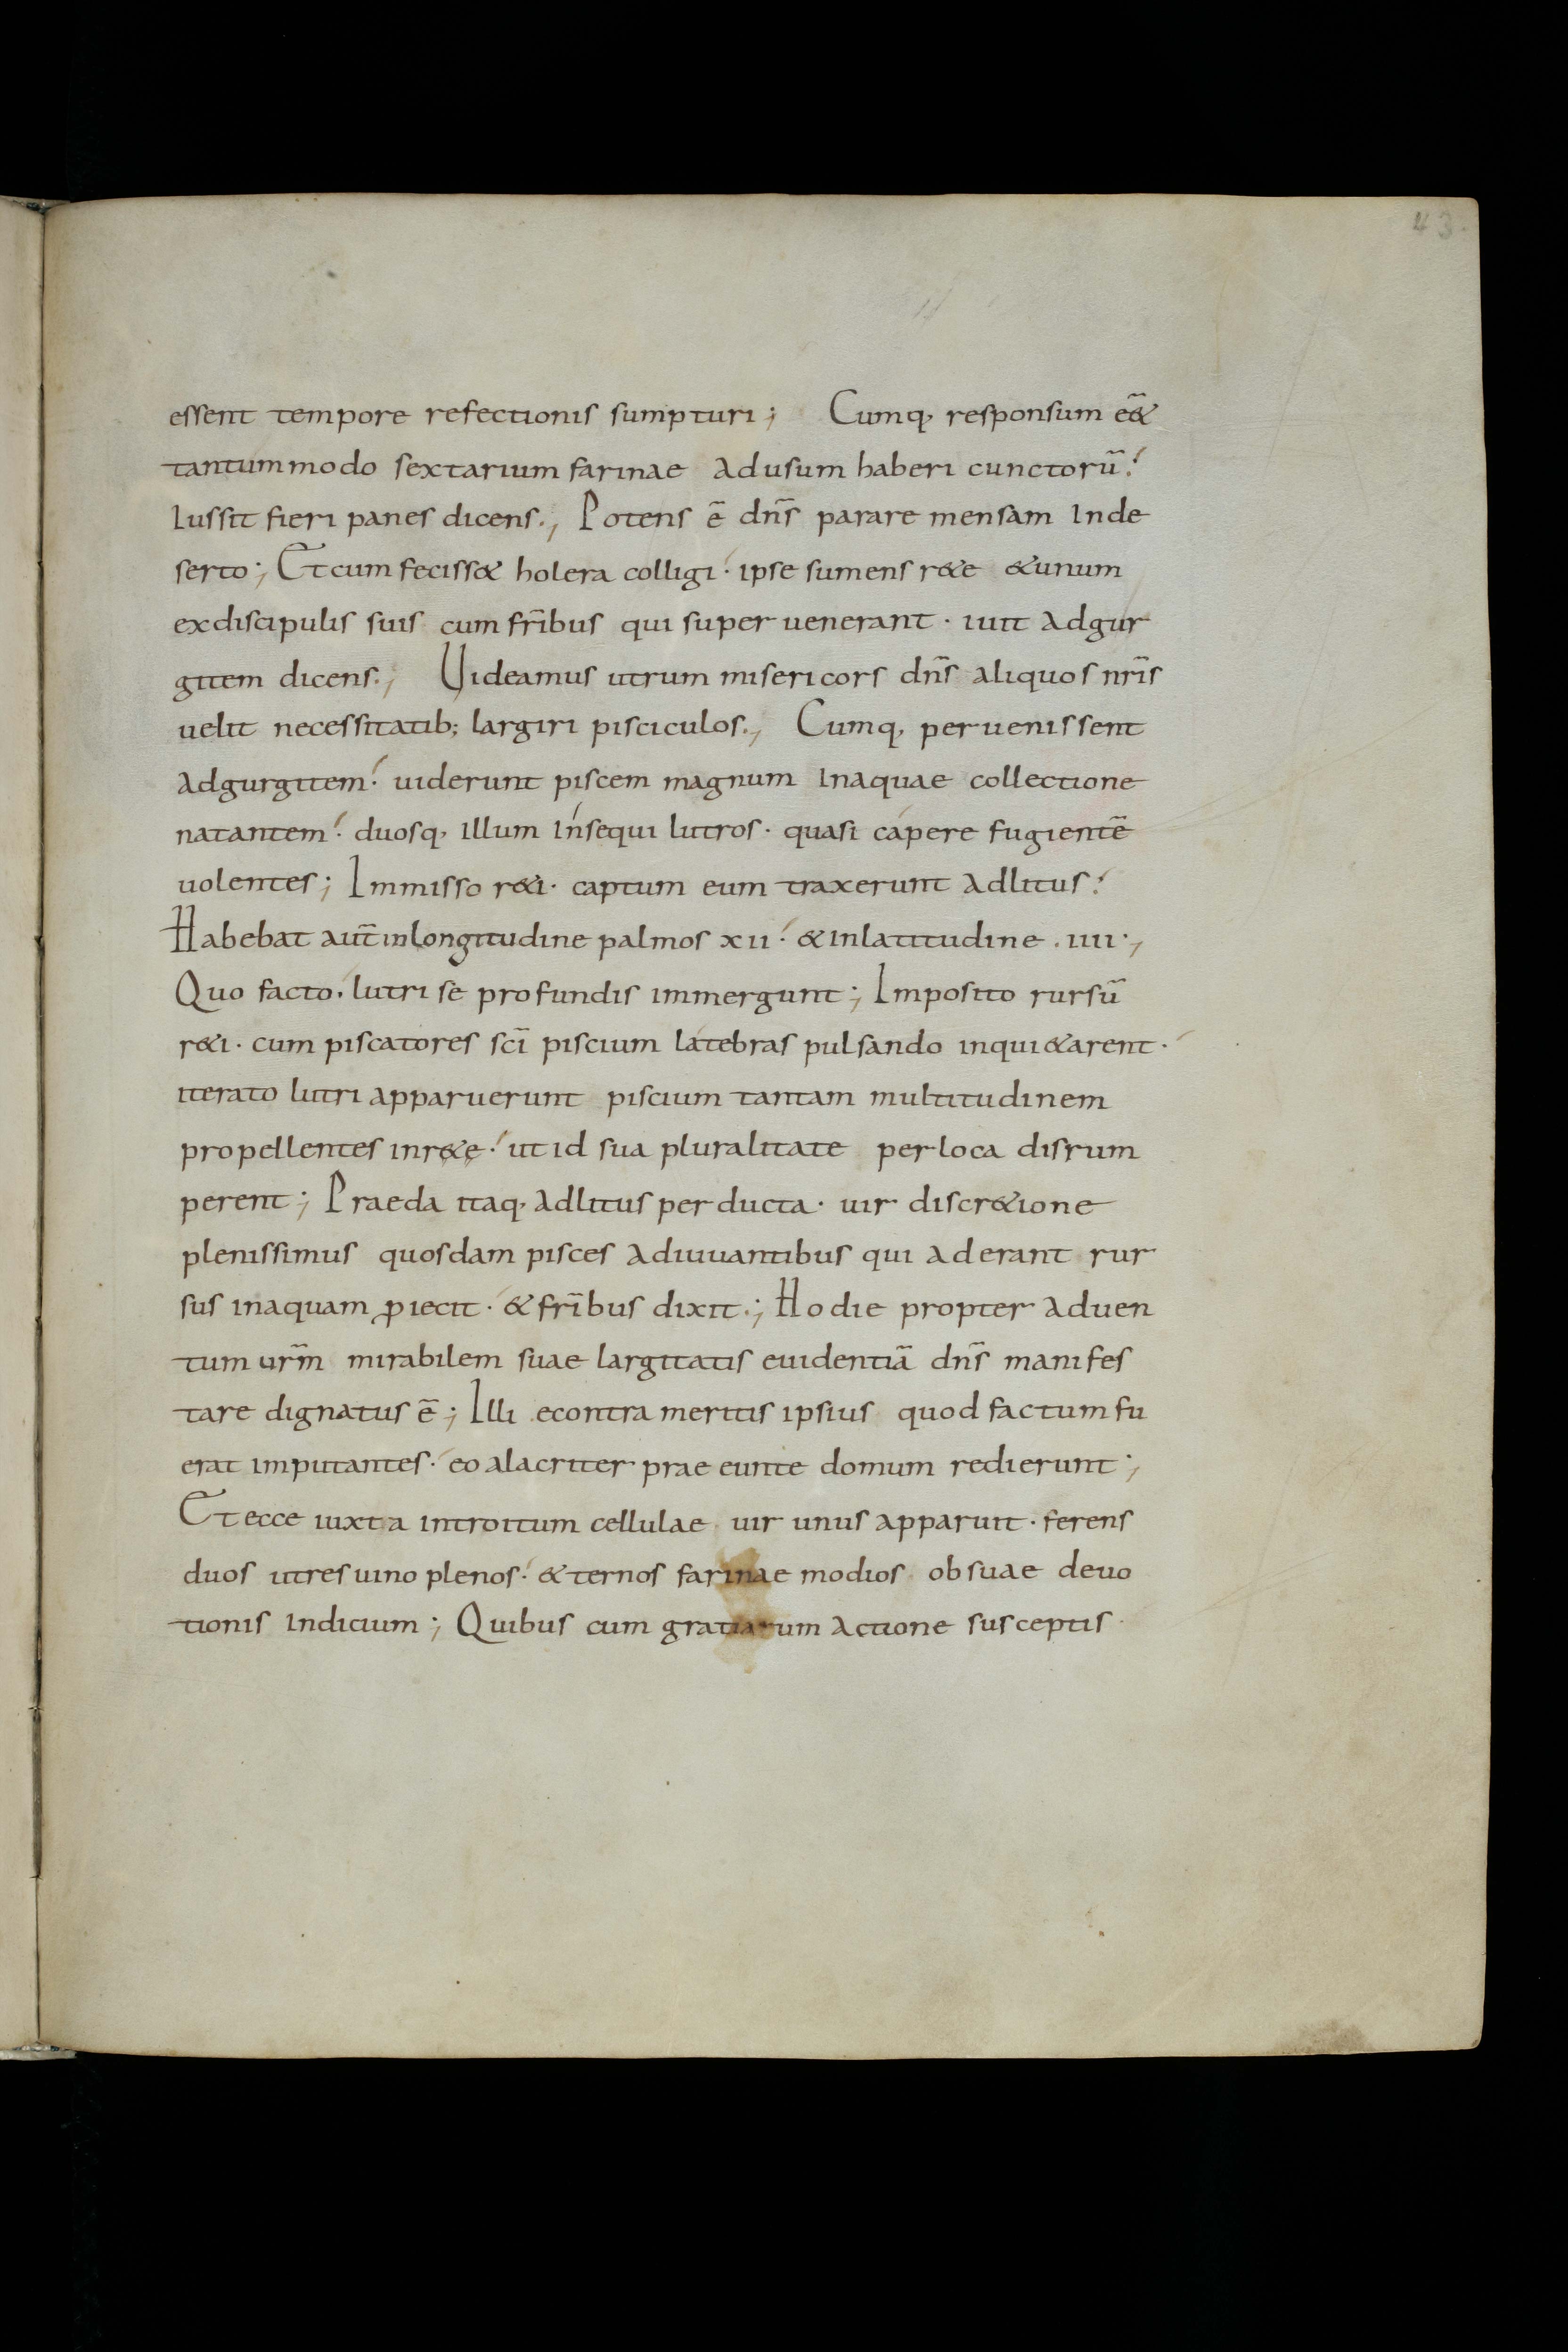 43
essent tempore refectionis sumpturi; Cumq, responsum eēt
tantummodo sextarium farinae ad usum haberi cunctorū.
Iussit fieri panes dicens., Potens ē dn̄s parare mensam in de
serto; Et cum feciss& holera colligi· ipse sumens r&e & unum
ex discipulis suis cum fr̄ibus qui superuenerant· iuit ad gur
gitem dicens., Uideamus utrum misericors dn̄s aliquos nr̄is
uelit necessitatib; largiri pisciculos., Cumq, peruenissent
ad gurgitem. uiderunt piscem magnum in aquae collectione
natantem. duosq, illum insequi lutros· quasi capere fugientē
uolentes; Immisso r&i· captum eum traxerunt ad litus.
Habebat aut̄ in longitudine palmos xii· & in latitudine .iiii·,
Quo facto. lutri se profundis immergunt; Imposito rursū
r&i· cum piscatores sc̄i piscium latebras pulsando inqui&arent·
iterato lutri apparuerunt piscium tantam multitudinem
propellentes in r&e· ut id sua pluralitate per loca disrum
perent; Praeda itaq, ad litus perducta· uir discr&ione
plenissimus quosdam pisces adiuuantibus qui aderant rur
sus in aquam ꝓiecit· & fr̄ibus dixit.; Hodie propter aduen
tum ur̄m mirabilem suae largitatis euidentiā dn̄s manifes
tare dignatus ē; Illi econtra meritis ipsius quod factum fu
erat imputantes· eo alacriter praeeunte domum redierunt;
Et ecce iuxta introitum cellulae uir unus apparuit· ferens
duos utres uino plenos· & ternos farinae modios ob suae deuo
tionis indicium; Quibus cum gratiarum actione susceptis·